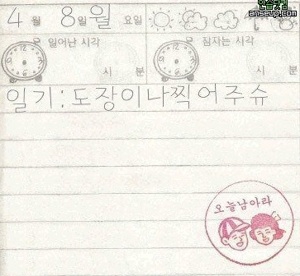 4 월 8일월 요일
일어난 시각 잠자는 시각
시 분 시 분
일기:도장이나찍어주슈
오늘남아라